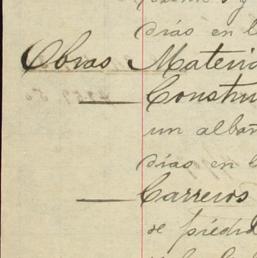 días en l
Obras Materia
Constru
un albañ
días en l
Carreros
de piedra